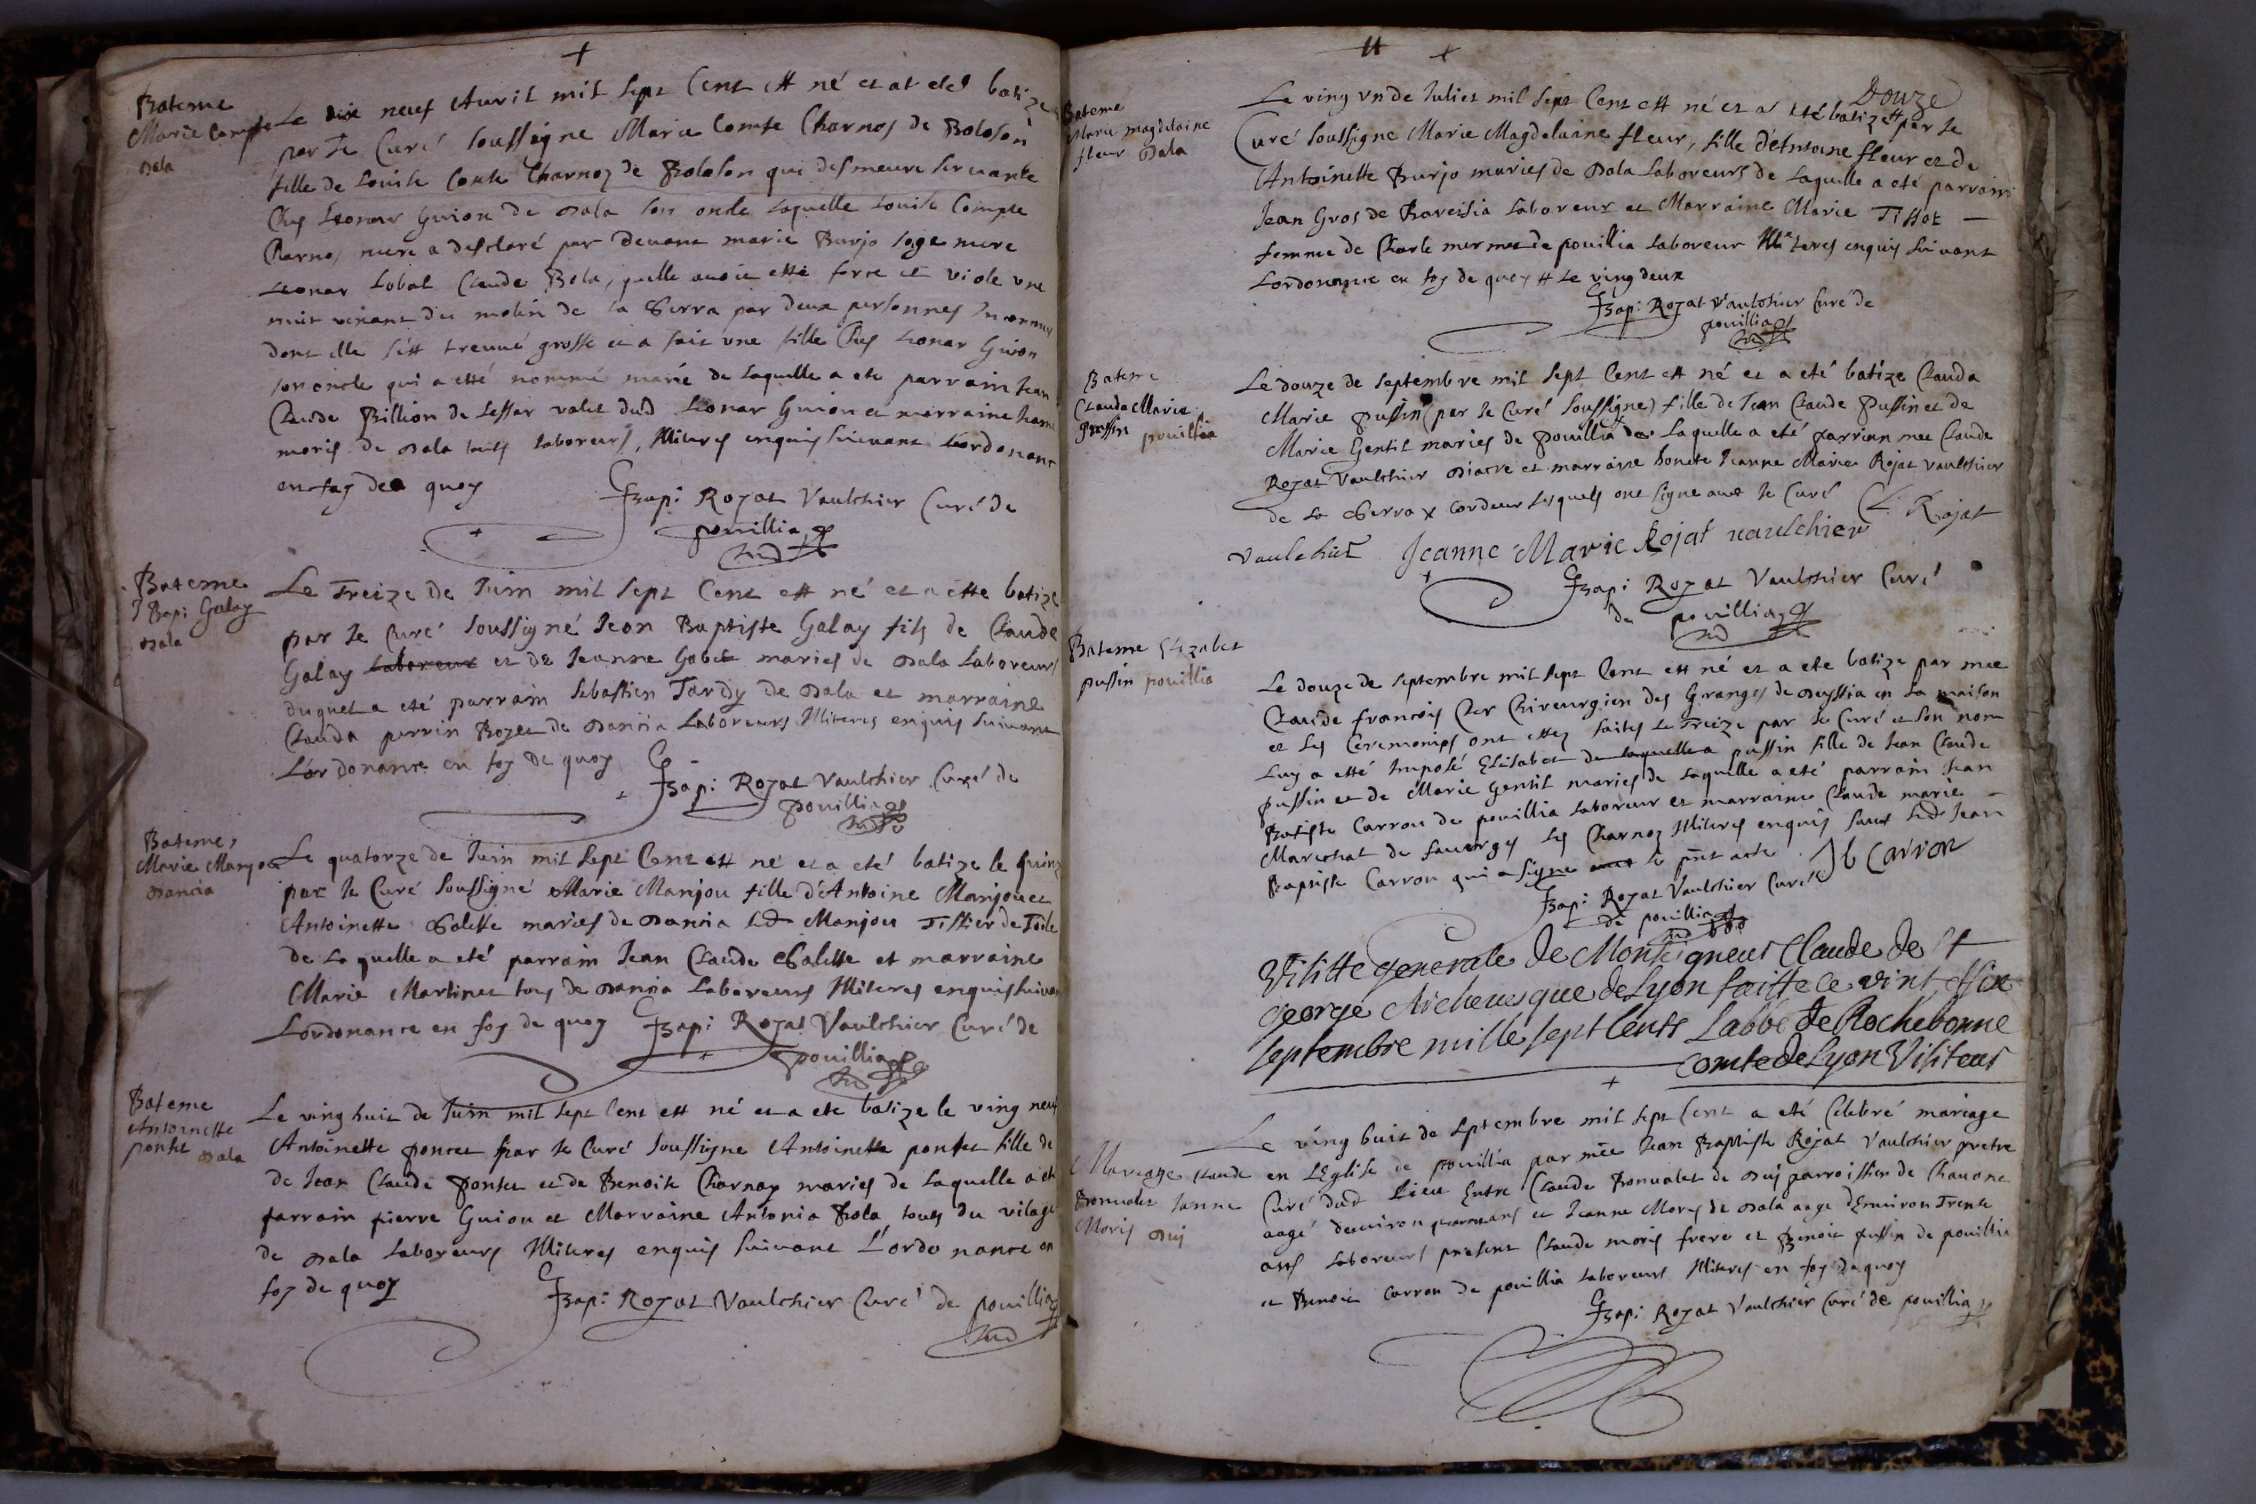 Bateme
Marie Compte
Dala
Le dix neuf Avril mil sept Cent est né et at eté batizé
par Je Curé soussigne Marie Comte Charnos de Boloson
fille de Louise Conte Charnoz de Boloson qui desmeure servante
Ches Leonar Guion de Dala son oncle laquelle Louise Compte
Charnoz mere a desclaré par devant marie Burjo sage mere
Leonar Lobat Claude Bola, quelle avoit esté force et viole une
nuit venant du molin de la Serra par deux personnes Inconnus
dont elle s'est treuvé grosse et a fait une fille Ches Leonar Guion
son oncle qui a esté nommé marie de laquelle a ete parrain Jean
Claude Billion de Lessar valet dud Leonar Guion et marraine Jeanne
moris de Dala touts laboreurs, Illiteres enquis suivant L'ordonance
en foy de quoy
JBapi Rojat Vaulchier Curé de
pouillia
Bateme
J Bapi Galay
Dala
Le Treize de Juin mil sept Cent est né et a esté batizé
par Je Curé soussigné Jean Baptiste Galay fils de Claude
Galay laboreur et de Jeanne Gobet mariés de Dala Laboreurs
duquel a eté parrain Sebastien Tardy de Dala et marraine
Clauda perrin Bozet de Dancia Laboreurs Illiteres enquis suivant
L'ordonance en foy de quoy
JBapi: Rojat Vaulchier Curé de
pouillia
Bateme
Marie Manjou
Dancia
Le quatorze de Juin mil sept Cent est né et a eté batize le quinze
par Je Curé soussigné Marie Manjou fille d'Antoine Manjou et
Antoinette Galette mariés de Dancia led Manjou Tissier de Toile
de laquelle a eté parrain Jean Claude Galette et marraine
Marie Martinet tous de Dancia Laboreurs Illiteres enquis suivant
L'ordonance en foy de quoy JBapi: Rojat Vaulchier Curé de
pouillia
Bateme
Antoinette
ponset Dala
Le ving huit de Juin mil sept Cent est né et a eté batize le ving neuf
Antoinette poncet par Je Curé soussigne Antoinette ponset fille de
de Jean Claude Ponset et de Benoite Charnay mariés de laquelle a eté
parrain pierre Guion et Marraine Antonia Bola touts du vilage
de Dala Laboreurs Illiteres enquis suivant L'ordonance en
foy de quoy
JBapi: Rojat Vaulchier Curé de pouillia
Douze
Bateme
Marie magdelaine
fleur Dala
Le ving un de Juliet mil sept Cent est né et a eté batizé # par Je
Curé soussigne Marie Magdelaine fleur, fille d'Antoine fleur et de
Antoinette Burjo mariés de Dala Laboreurs de laquelle a eté parrain
Jean Gros de Baresia laboreur et Marraine Marie Tissot
femme de Charle mermet de pouillia laboreur Illiteres enquis suivant
Lordonance en foy de quoy # le ving deux
JBapi: Rojat Vaulchier Curé de
pouillia
Bateme
Clauda Marie
pussin pouillia
Le douze de septembre mil sept Cent est né et a eté batize Clauda
Marie pussin (par Je Curé soussigne) fille de Jean Claude Pussin et de
Marie Gentit mariés de pouillia de Laquelle a eté parrien mre Claude
Rojat Vaulchier Diacre et marraine honete Jeanne Marie Rojat vaulchier
de la Serra x cordeur lesquels ont signe avec Je Curé C. Rojat
vaulchier Jeanne Marie Rojat vaulchier
JBapi Rojat Vaulchier Curé
de pouillia
Bateme Elizabet
pussin pouillia
Le douze de septembre mil sept Cent est né et a eté batize par mre
Claude francois Cler Chireurgien des Granges de Deyssia en la maison
et Les Ceremonies ont estez faites le Treize par Je Curé et son nom
Luy a esté Imposé Elisabet de laquelle a pussin fille de Jean Claude
pussin et de Marie Gentit mariés de laquelle a eté parrain Jean
Batiste Carron de pouillia laboreur et marraine Claude marie
Marechal de Savergy les Charnoz Illiteres enquis sauf led Jean
Baptiste Carron qui a signe avec le pnt acte J b Carron
JBapi: Rojat Vaulchier Curé
de pouillia
Visitte generale de Monseigneur Claude de St
george Archevesque de Lyon faitte ce vint & six
septembre mille sept Cents Labbé de Rochebonne
Comte de Lyon Visiteur
Mariage Claude
Bonvalet Janne
Moris Dui
Le ving huit de septembre mil sept Cent a eté Celebré mariage
en L'Eglise de pouillia par mre Jean Baptiste Rojat Vaulchier pretre
Curé dud lieu Entre Claude Bonvalet de Dui parroissien de Chavane
aagé denviron quarante ans et Jeanne Moris de Dala aage d'Environ Trente
ans Laboreurs present Claude moris frere et Benoit pussin de pouillia
et Benoit Carron de pouillia laboreurs Illiteres en foy de quoy
JBapi: Rojat Vaulchier Curé de pouillia